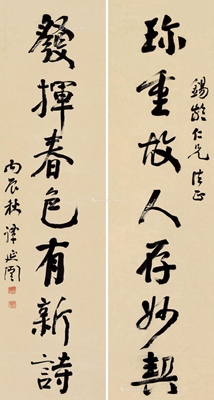 錫齡仁兄法正
珍重故人存妙契
發揮春色有新詩
丙辰秋譚延闓